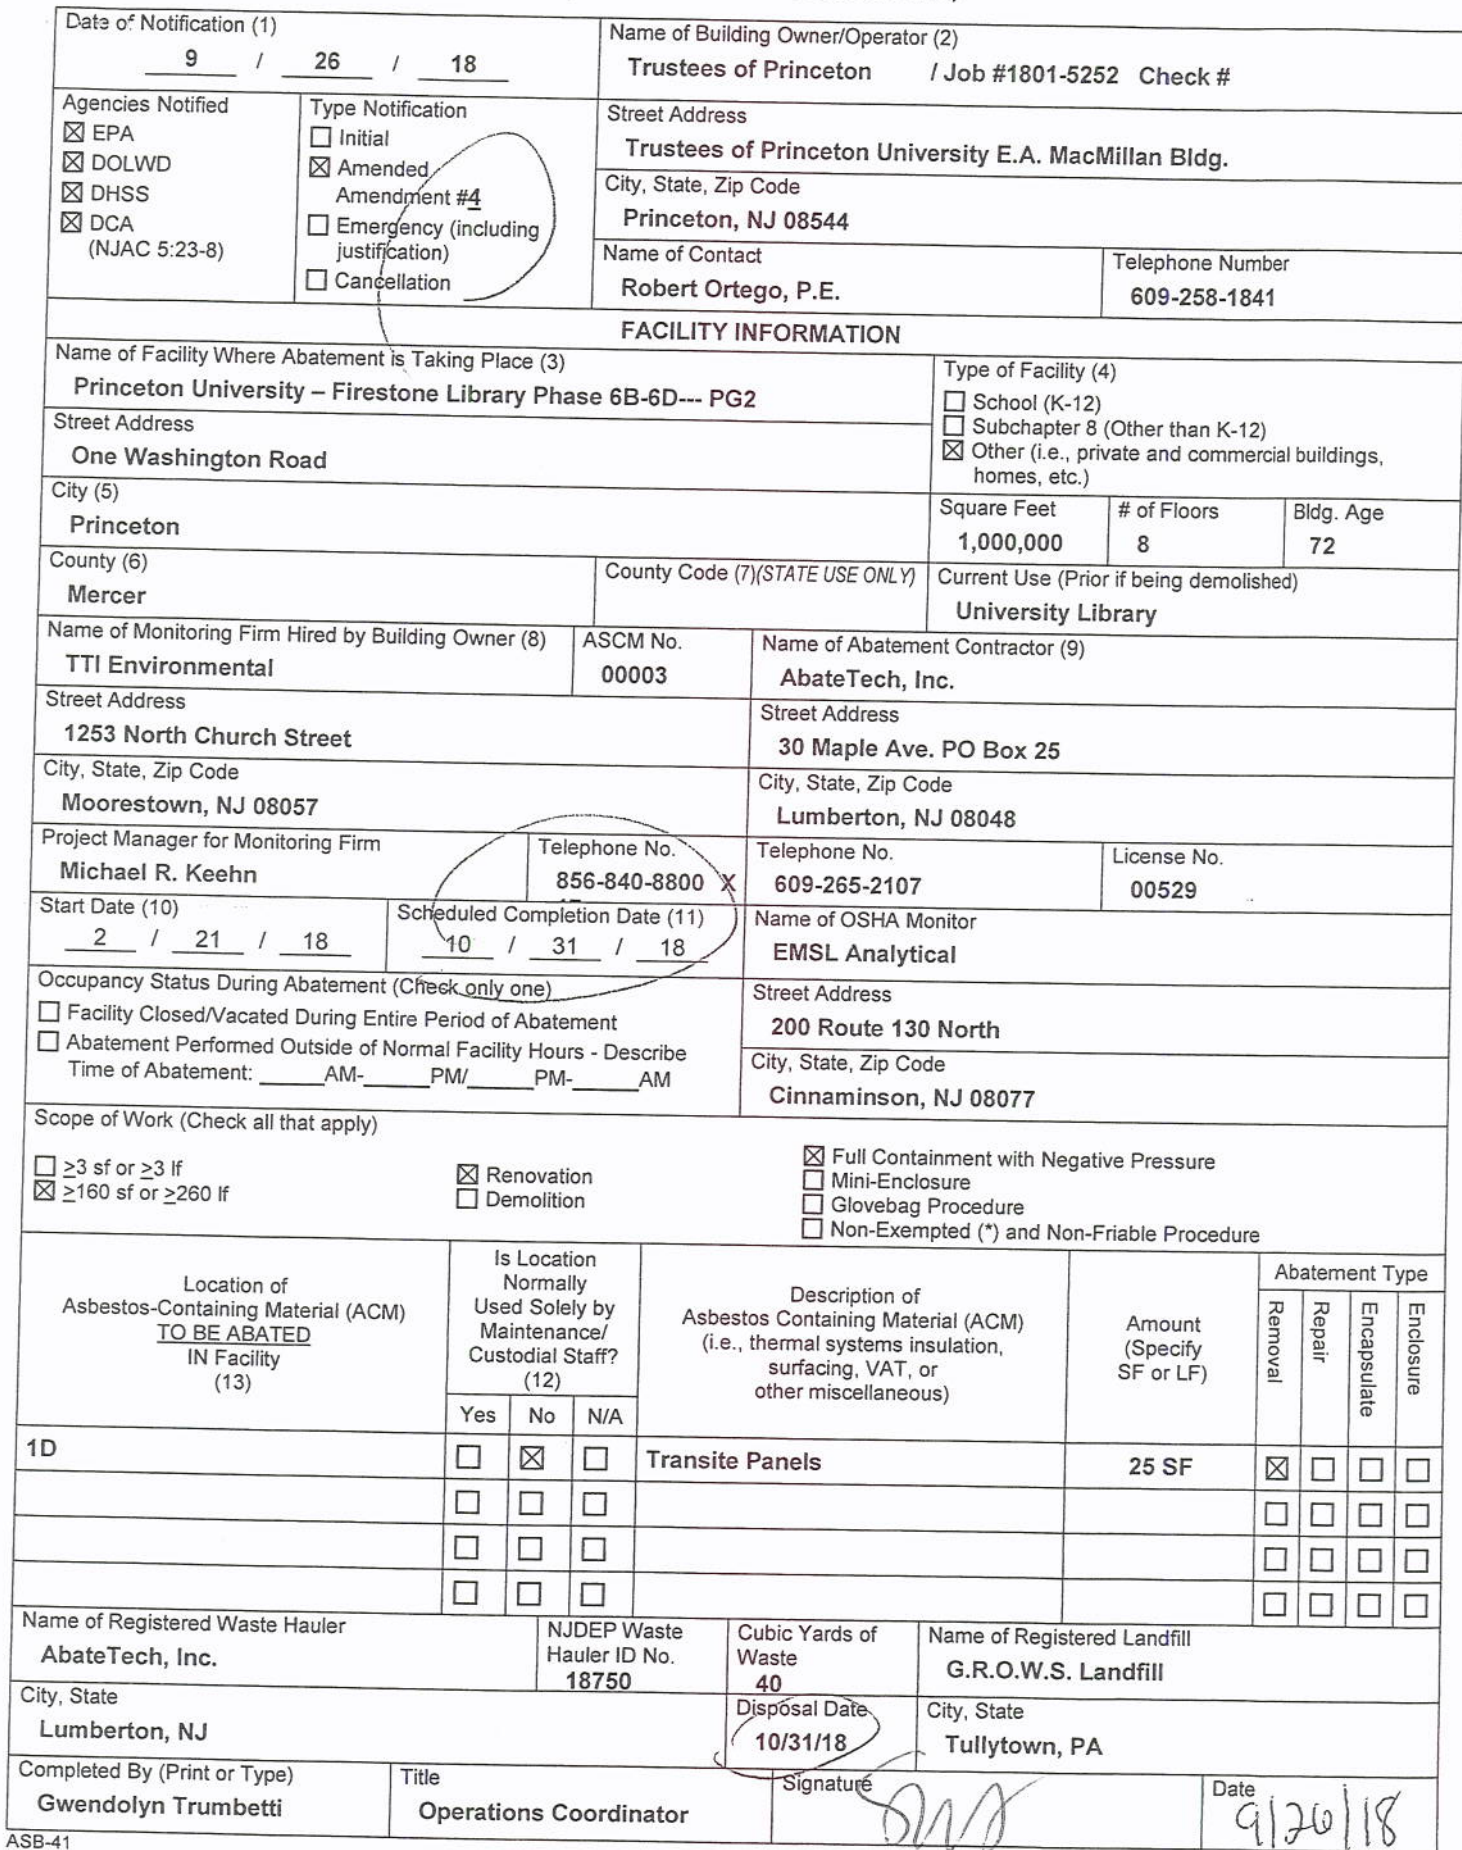 Date of Notification (1)
9 / 26 / 18
Name of Building Owner/Operator (2)
Trustees of Princeton / Job #1801-5252 Check #
Agencies Notified
☒ EPA
☒ DOLWD
☒ DHSS
☒ DCA
(NJAC 5:23-8)
Type Notification
☐ Initial
☒ Amended
Amendment #4
☐ Emergency (including
justification)
☐ Cancellation
Street Address
Trustees of Princeton University E.A. MacMillan Bldg.
City, State, Zip Code
Princeton, NJ 08544
Name of Contact
Robert Ortego, P.E.
Telephone Number
609-258-1841
FACILITY INFORMATION
Name of Facility Where Abatement is Taking Place (3)
Princeton University – Firestone Library Phase 6B-6D--- PG2
Type of Facility (4)
☐ School (K-12)
☐ Subchapter 8 (Other than K-12)
☒ Other (i.e., private and commercial buildings,
homes, etc.)
Street Address
One Washington Road
City (5)
Princeton
Square Feet
1,000,000
# of Floors
8
Bldg. Age
72
County (6)
Mercer
County Code (7)(STATE USE ONLY)
Current Use (Prior if being demolished)
University Library
Name of Monitoring Firm Hired by Building Owner (8)
TTI Environmental
ASCM No.
00003
Name of Abatement Contractor (9)
AbateTech, Inc.
Street Address
1253 North Church Street
Street Address
30 Maple Ave. PO Box 25
City, State, Zip Code
Moorestown, NJ 08057
City, State, Zip Code
Lumberton, NJ 08048
Project Manager for Monitoring Firm
Michael R. Keehn
Telephone No.
856-840-8800 X
Telephone No.
609-265-2107
License No.
00529
Start Date (10)
2 / 21 / 18
Scheduled Completion Date (11)
10 / 31 / 18
Name of OSHA Monitor
EMSL Analytical
Occupancy Status During Abatement (Check only one)
☐ Facility Closed/Vacated During Entire Period of Abatement
☐ Abatement Performed Outside of Normal Facility Hours - Describe
Time of Abatement: _____AM-_____PM/_____PM-_____AM
Street Address
200 Route 130 North
City, State, Zip Code
Cinnaminson, NJ 08077
Scope of Work (Check all that apply)
☐ ≥3 sf or ≥3 lf
☒ ≥160 sf or ≥260 lf
☒ Renovation
☐ Demolition
☒ Full Containment with Negative Pressure
☐ Mini-Enclosure
☐ Glovebag Procedure
☐ Non-Exempted (*) and Non-Friable Procedure
Location of
Asbestos-Containing Material (ACM)
TO BE ABATED
IN Facility
(13)
Is Location
Normally
Used Solely by
Maintenance/
Custodial Staff?
(12)
Yes No N/A
Description of
Asbestos Containing Material (ACM)
(i.e., thermal systems insulation,
surfacing, VAT, or
other miscellaneous)
Amount
(Specify
SF or LF)
Abatement Type
Removal
Repair
Encapsulate
Enclosure
1D ☐ ☒ ☐ Transite Panels 25 SF ☒ ☐ ☐ ☐
☐ ☐ ☐ ☐ ☐ ☐ ☐
☐ ☐ ☐ ☐ ☐ ☐ ☐
☐ ☐ ☐ ☐ ☐ ☐ ☐
Name of Registered Waste Hauler
AbateTech, Inc.
NJDEP Waste
Hauler ID No.
18750
Cubic Yards of
Waste
40
Name of Registered Landfill
G.R.O.W.S. Landfill
City, State
Lumberton, NJ
Disposal Date
10/31/18
City, State
Tullytown, PA
Completed By (Print or Type)
Gwendolyn Trumbetti
Title
Operations Coordinator
Signature
Date
9/26/18
ASB-41